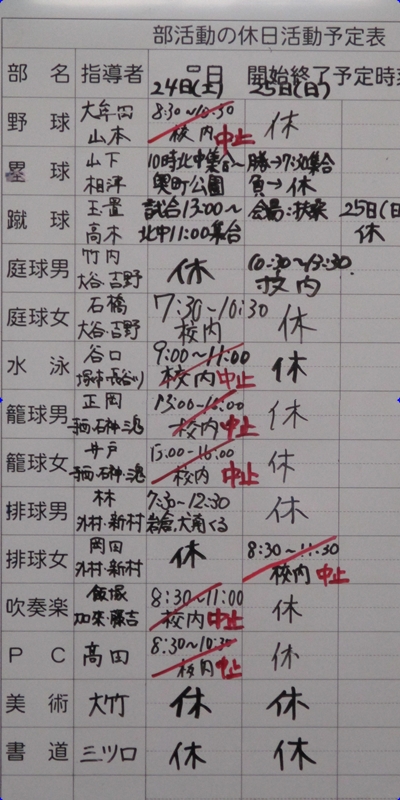 部活動の休日活動予定表
部 名 指導者 月日 開始終了予定時刻
24日(土) 25日(日)
野 球 大牟田 8:30~10:30 休
山本 校内 中止
塁 球 山下 10時北中集合~ 勝→7:30集合
相津 奥町公園 負→休
蹴 球 玉置 試合13:00~ 会場:扶桑 25日(日
高木 北中11:00集合 休
庭球男 竹内 休 10:30~13:30
大谷・吉野 校内
庭球女 石橋 7:30~10:30 休
大谷・吉野 校内
水 泳 谷口 9:00~11:00 休
校内 中止
籠球男 正岡 13:00~16:00 休
校内 中止
籠球女 井戸 13:00~16:00 休
校内 中止
排球男 林 7:30~12:30 休
外村・新村
排球女 岡田 休 8:30~11:30
外村・新村 校内 中止
吹奏楽 飯塚 8:30~11:00 休
加来・藤吉 校内 中止
P C 高田 8:30~10:30 休
校内 中止
美 術 大竹 休 休
書 道 三ツ口 休 休